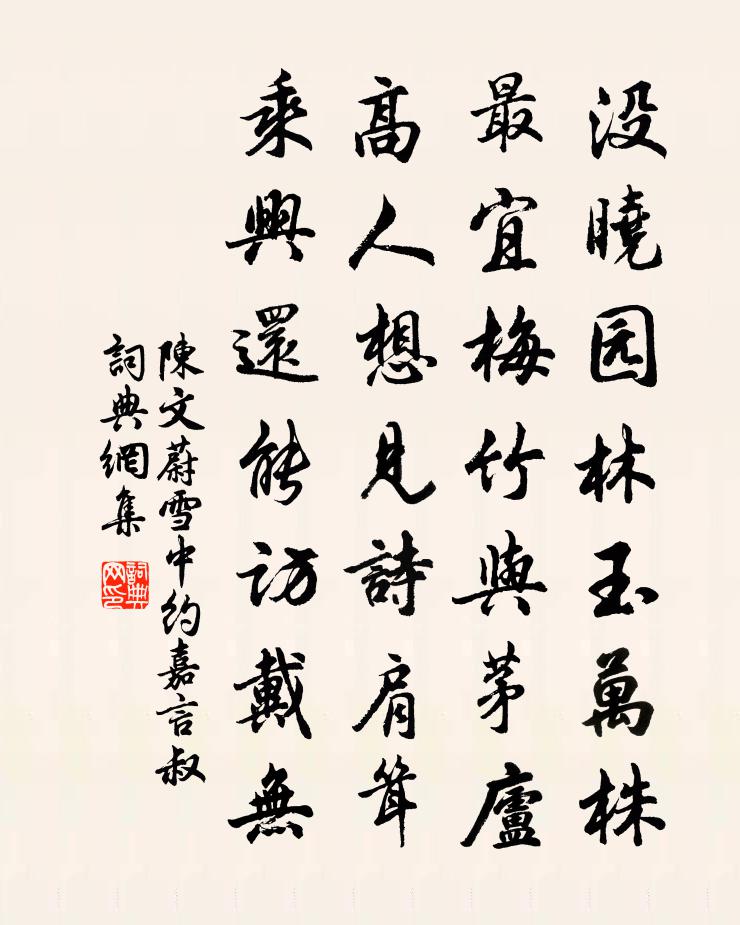 没曉园林玉萬株
最宜梅竹與茅廬
高人想見詩肩聳
乘興還能訪戴無
陳文蔚雪中約嘉言叔
詞典網集
詞典
网印